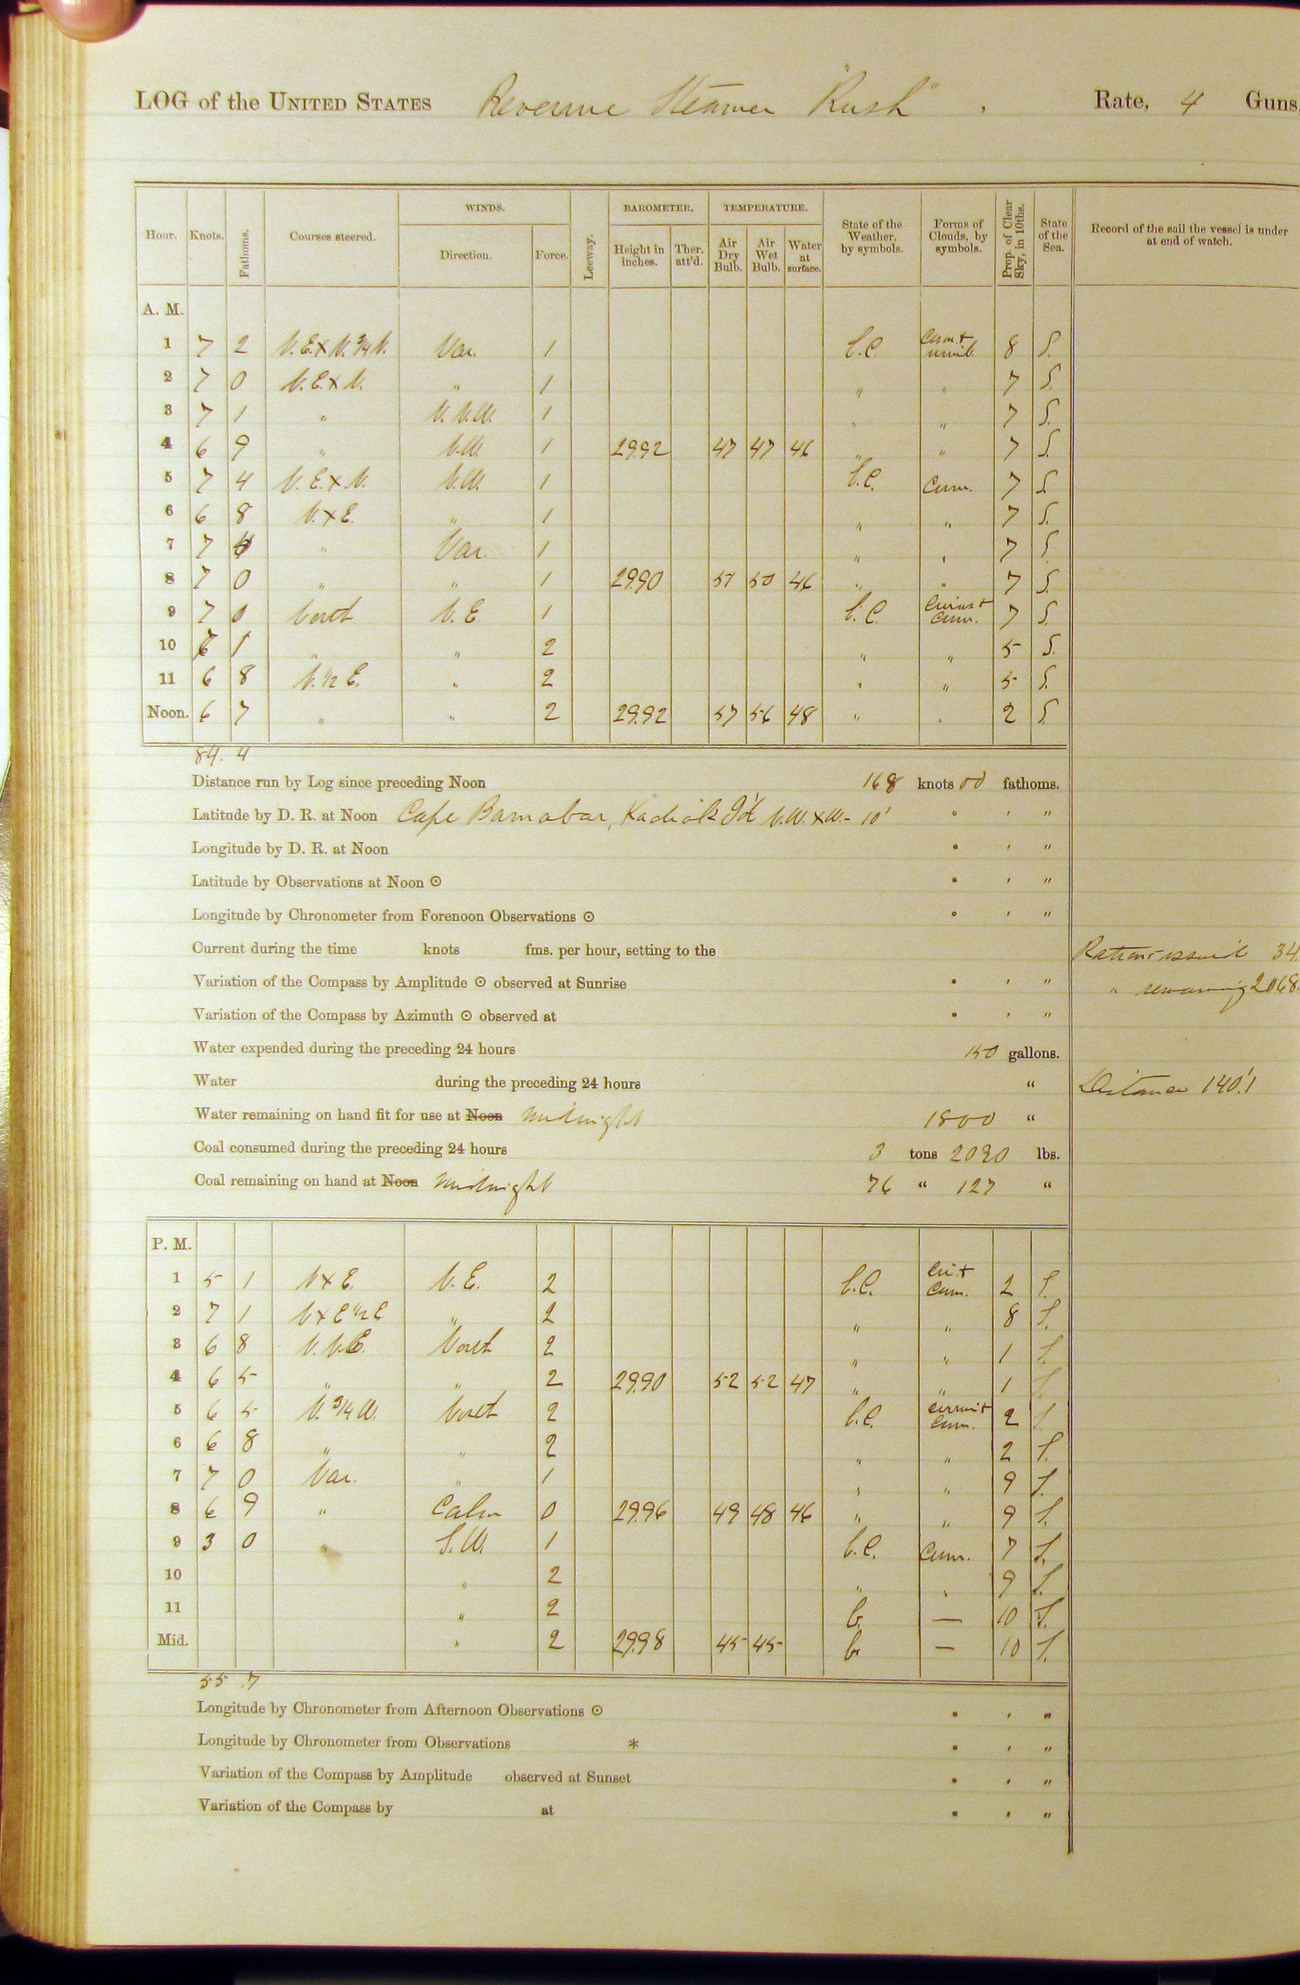 LOG of the UNITED STATES Revenue Steamer "Rush" , Rate, 4 Guns,
Hour. Knots. Fathoms. Courses steered. WINDS. Direction. Force. Leeway. BAROMETER. Height in inches. Ther. att'd. TEMPERATURE. Air Dry Bulb. Air Wet Bulb. Water at surface. State of the Weather, by symbols. Forms of Clouds, by symbols. Prop. of Clear Sky, in 10ths. State of the Sea. Record of the sail the vessel is under at end of watch.
A. M.
1 7 2 N.E.x N.3/4 N. Var. 1 b.c. Cum + nimb. 8 S.
2 7 0 N.E.x N. " 1 " " 7 S.
3 7 1 " N.N.W. 1 " " 7 S.
4 6 9 " N.W. 1 29.92 47 47 46 " " 7 S.
5 7 4 N.E.x N. N.W. 1 b.c. Cum. 7 S.
6 6 8 N.x E. " 1 " " 7 S.
7 7 " Var. 1 " " 7 S.
8 7 0 " " 1 29.90 51 50 46 " " 7 S.
9 7 0 North N.E. 1 b.c. Cirrus + Cum. 7 S.
10 1 " " 2 " " 5 S.
11 6 8 N.1/2 E. " 2 " " 5 S.
Noon. 6 7 " " 2 29.92 57 56 48 " " 2 S
84. 4
Distance run by Log since preceding Noon 168 knots 00 fathoms.
Latitude by D. R. at Noon Cape Barnabas, Kadiak I'd N.W.x W.- 10' ° ' "
Longitude by D. R. at Noon ° ' "
Latitude by Observations at Noon ⊙ ° ' "
Longitude by Chronometer from Forenoon Observations ⊙ ° ' "
Current during the time knots fms. per hour, setting to the
Rations issued 34.
Variation of the Compass by Amplitude ⊙ observed at Sunrise ° ' "
" remaining 2068.
Variation of the Compass by Azimuth ⊙ observed at ° ' "
Water expended during the preceding 24 hours 150 gallons.
Water during the preceding 24 hours "
Distance 140.'1
Water remaining on hand fit for use at Noon Midnight 1800 "
Coal consumed during the preceding 24 hours 3 tons 2020 lbs.
Coal remaining on hand at Noon Midnight 76 " 127 "
P. M.
1 5 1 N x E. N.E. 2 b.c. Cir + Cum. 2 S.
2 7 1 N x E 1/2 E " 2 " " 8 S.
3 6 8 N.N.E. North 2 " " 1 S.
4 6 5 " " 2 29.90 52 52 47 " " 1 S.
5 6 5 N.3/4 W. North 2 b.c. Cirrus + Cum. 2 S.
6 6 8 " " 2 " " 2 S.
7 7 0 Var. " 1 " " 9 S.
8 6 9 " Calm 0 29.96 49 48 46 " " 9 S.
9 3 0 " S.W. 1 b.c. Cum. 7 S.
10 " 2 " " 9 S.
11 " 2 b. — 10 S.
Mid. " 2 29.98 45 45 b. — 10 S.
55 .7
Longitude by Chronometer from Afternoon Observations ⊙ ° ' "
Longitude by Chronometer from Observations * ° ' "
Variation of the Compass by Amplitude observed at Sunset ° ' "
Variation of the Compass by at ° ' "